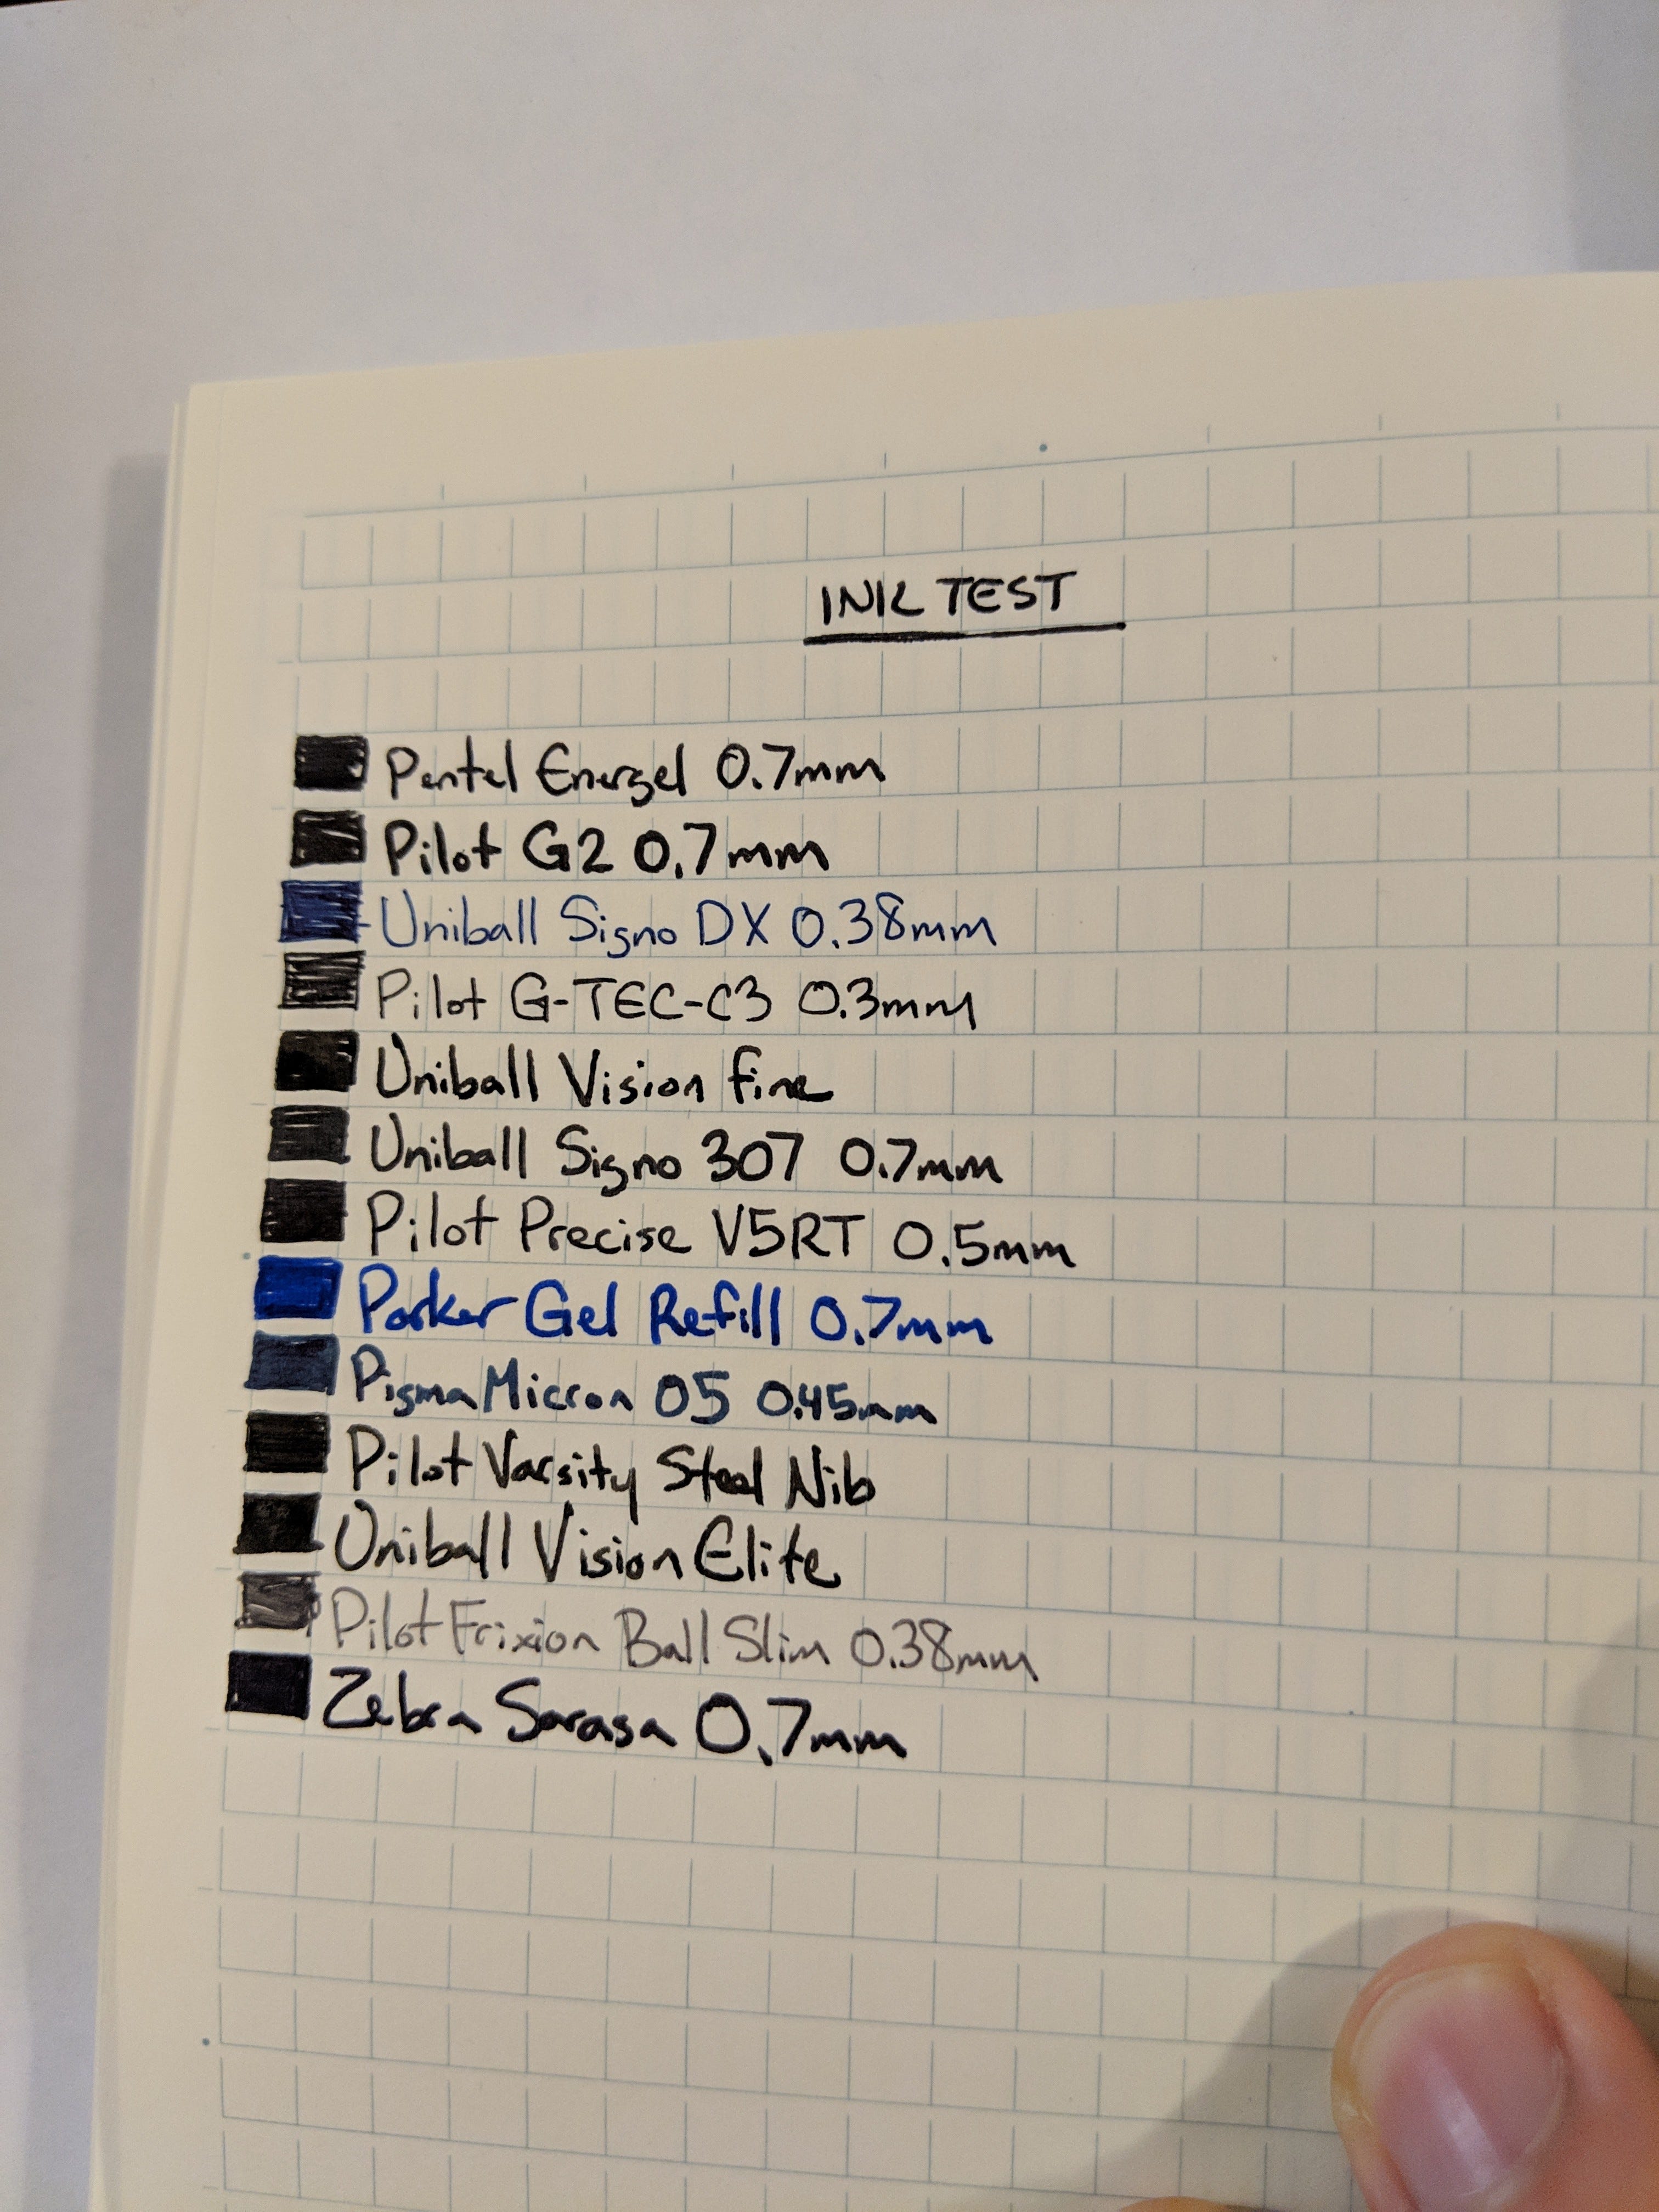 INK TEST
Pentel Energel 0.7mm
Pilot G2 0.7mm
Uniball Signo DX 0.38mm
Pilot G-TEC-C3 0.3mm
Uniball Vision fine
Uniball Signo 307 0.7mm
Pilot Precise V5RT 0.5mm
Parker Gel Refill 0.7mm
Pigma Micron 05 0.45mm
Pilot Varsity Steel Nib
Uniball Vision Elite
Pilot Frixion Ball Slim 0.38mm
Zebra Sarasa 0.7mm